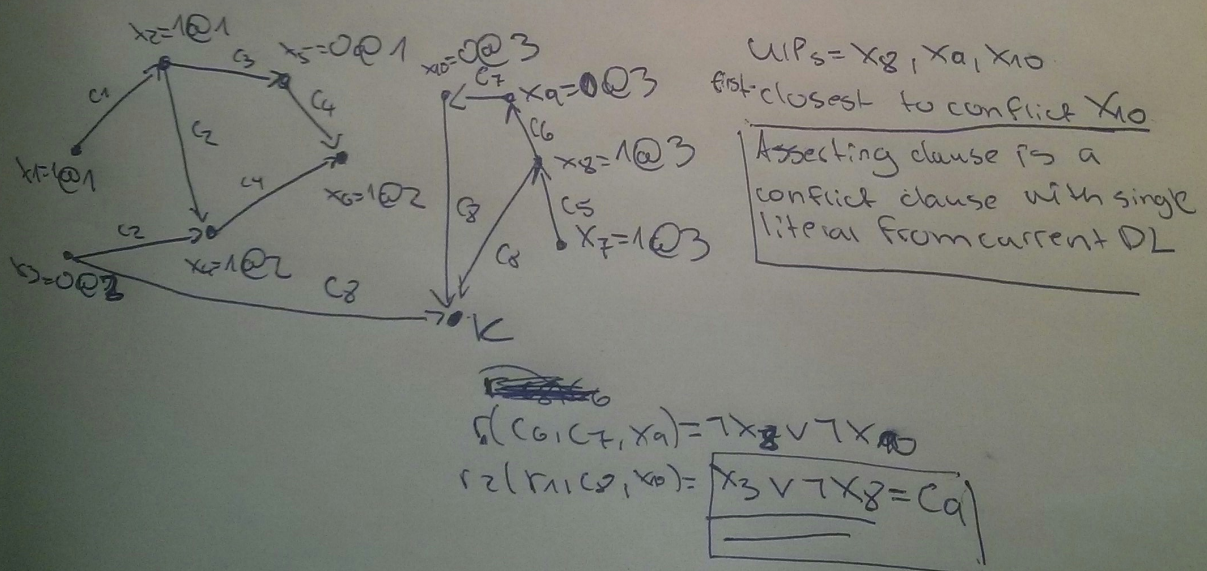 x2=1@1
c3
x5=0@1
c1
c2
c4
x1=1@1
c4
x6=1@2
c2
x4=1@2
x3=0@2
c8
x10=0@3
c7
x9=0@3
c6
x8=1@3
c8
c5
c8
x7=1@3
K
UIPs = x8, x9, x10
first-closest to conflict x10
Asserting clause is a
conflict clause with single
literal from current DL
r1(c6,c7,x9)=¬x8∨¬x10
r2(r1,c8,x10)= x3∨¬x8=C9